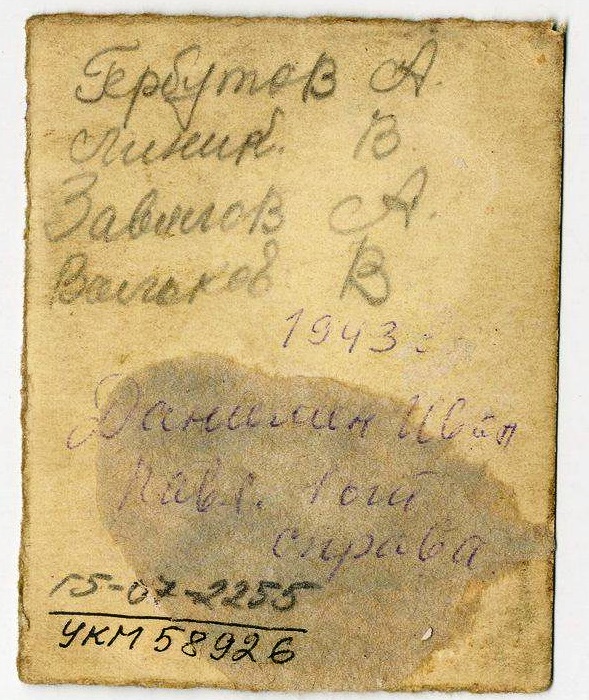 Гербутов А.
Линик. В.
Завялов А.
Вальков В
1943 г
Данилин Иван
Павл. 1 ый
справа
Г5-07-2255
УКМ 58926